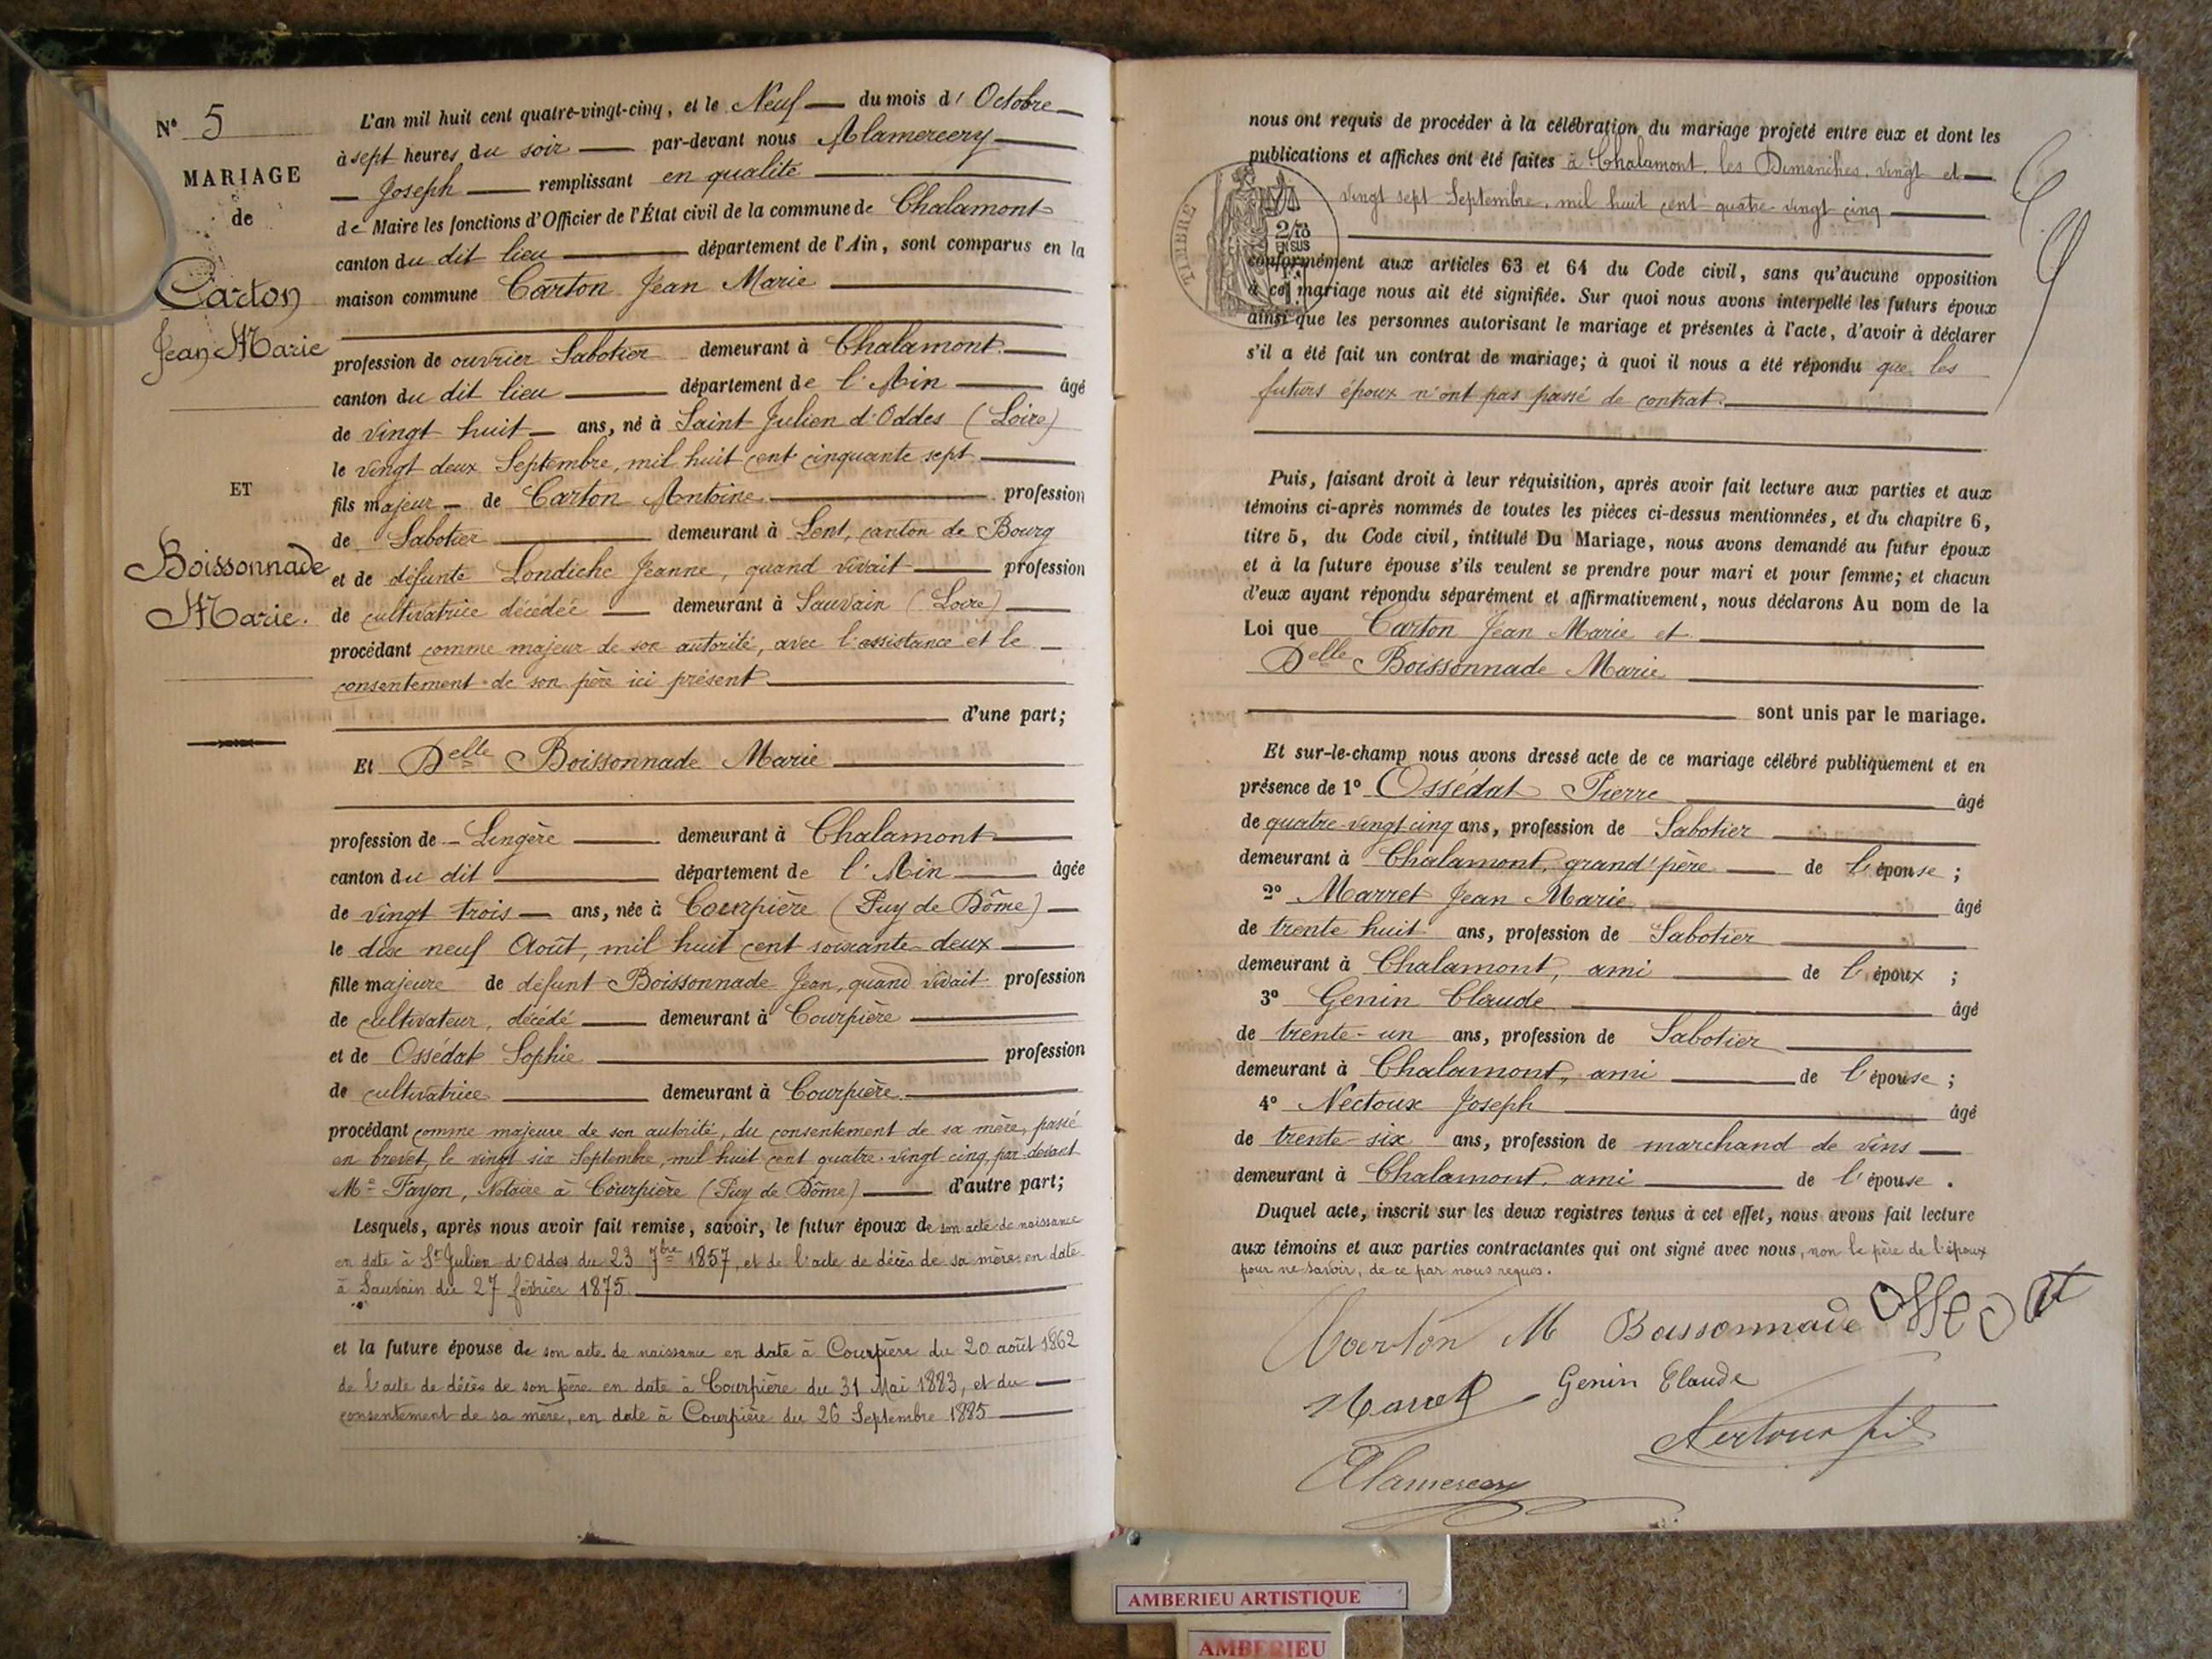 N° 5
MARIAGE
de
Carton
Jean Marie
ET
Boissonnade
Marie.
L'an mil huit cent quatre-vingt-cinq, et le Neuf du mois d'Octobre
à sept heures du soir par-devant nous Alamercery
Joseph remplissant en qualité
de Maire les fonctions d'Officier de l'État civil de la commune de Chalamont
canton du dit lieu département de l'Ain, sont comparus en la
maison commune Carton Jean Marie
profession de ouvrier Sabotier demeurant à Chalamont.
canton du dit lieu département de l'Ain âgé
de vingt huit ans, né à Saint Julien d'Oddes (Loire)
le vingt deux Septembre, mil huit cent cinquante sept
fils majeur de Carton Antoine. profession
de Sabotier demeurant à Lent, canton de Bourg
et de défunte Londiche Jeanne, quand vivait profession
de cultivatrice décédée demeurant à Sauvain (Loire)
procédant comme majeur de son autorité, avec l'assistance et le
consentement de son père ici présent
d'une part;
Et Delle Boissonnade Marie
profession de Lingère demeurant à Chalamont
canton du dit département de l'Ain âgée
de vingt trois ans, née à Courpière (Puy de Dôme)
le dix neuf Août, mil huit cent soixante deux
fille majeure de défunt Boissonnade Jean, quand vivait profession
de cultivateur, décédé demeurant à Courpière
et de Ossédat Sophie profession
de cultivatrice demeurant à Courpière.
procédant comme majeure de son autorité, du consentement de sa mère, passé
en brevet, le vingt six Septembre, mil huit cent quatre-vingt cinq, par devant
Me Fayon, Notaire à Courpière (Puy de Dôme) d'autre part;
Lesquels, après nous avoir fait remise, savoir, le futur époux de son acte de naissance
en date à St Julien d'Oddes du 23 7bre 1857, et de l'acte de décès de sa mère en date
à Sauvain du 27 février 1875.
et la future épouse de son acte de naissance en date à Courpière du 20 août 1862
de l'acte de décès de son père en date à Courpière du 31 Mai 1883, et du
consentement de sa mère, en date à Courpière du 26 Septembre 1885
nous ont requis de procéder à la célébration du mariage projeté entre eux et dont les
publications et affiches ont été faites à Chalamont, les Dimanches, vingt et
vingt sept Septembre, mil huit cent quatre-vingt cinq
TIMBRE
2/10
EN SUS
conformément aux articles 63 et 64 du Code civil, sans qu'aucune opposition
à ce mariage nous ait été signifiée. Sur quoi nous avons interpellé les futurs époux
ainsi que les personnes autorisant le mariage et présentes à l'acte, d'avoir à déclarer
s'il a été fait un contrat de mariage; à quoi il nous a été répondu que les
futurs époux n'ont pas passé de contrat.
Puis, faisant droit à leur réquisition, après avoir fait lecture aux parties et aux
témoins ci-après nommés de toutes les pièces ci-dessus mentionnées, et du chapitre 6,
titre 5, du Code civil, intitulé Du Mariage, nous avons demandé au futur époux
et à la future épouse s'ils veulent se prendre pour mari et pour femme; et chacun
d'eux ayant répondu séparément et affirmativement, nous déclarons Au nom de la
Loi que Carton Jean Marie et
Delle Boissonnade Marie
sont unis par le mariage.
Et sur-le-champ nous avons dressé acte de ce mariage célébré publiquement et en
présence de 1° Ossédat Pierre âgé
de quatre-vingt cinq ans, profession de Sabotier
demeurant à Chalamont, grand'père de l'épouse ;
2° Marret Jean Marie âgé
de trente huit ans, profession de Sabotier
demeurant à Chalamont, ami de l'époux ;
3° Genin Claude âgé
de trente-un ans, profession de Sabotier
demeurant à Chalamont, ami de l'épouse ;
4° Nectoux Joseph âgé
de trente-six ans, profession de marchand de vins
demeurant à Chalamont, ami de l'épouse .
Duquel acte, inscrit sur les deux registres tenus à cet effet, nous avons fait lecture
aux témoins et aux parties contractantes qui ont signé avec nous, non le père de l'époux
pour ne savoir, de ce par nous requis.
Carton M Boissonnade Ossedat
Marret Genin Claude
Nectoux fils
Alamercery
AMBERIEU ARTISTIQUE
AMBERIEU